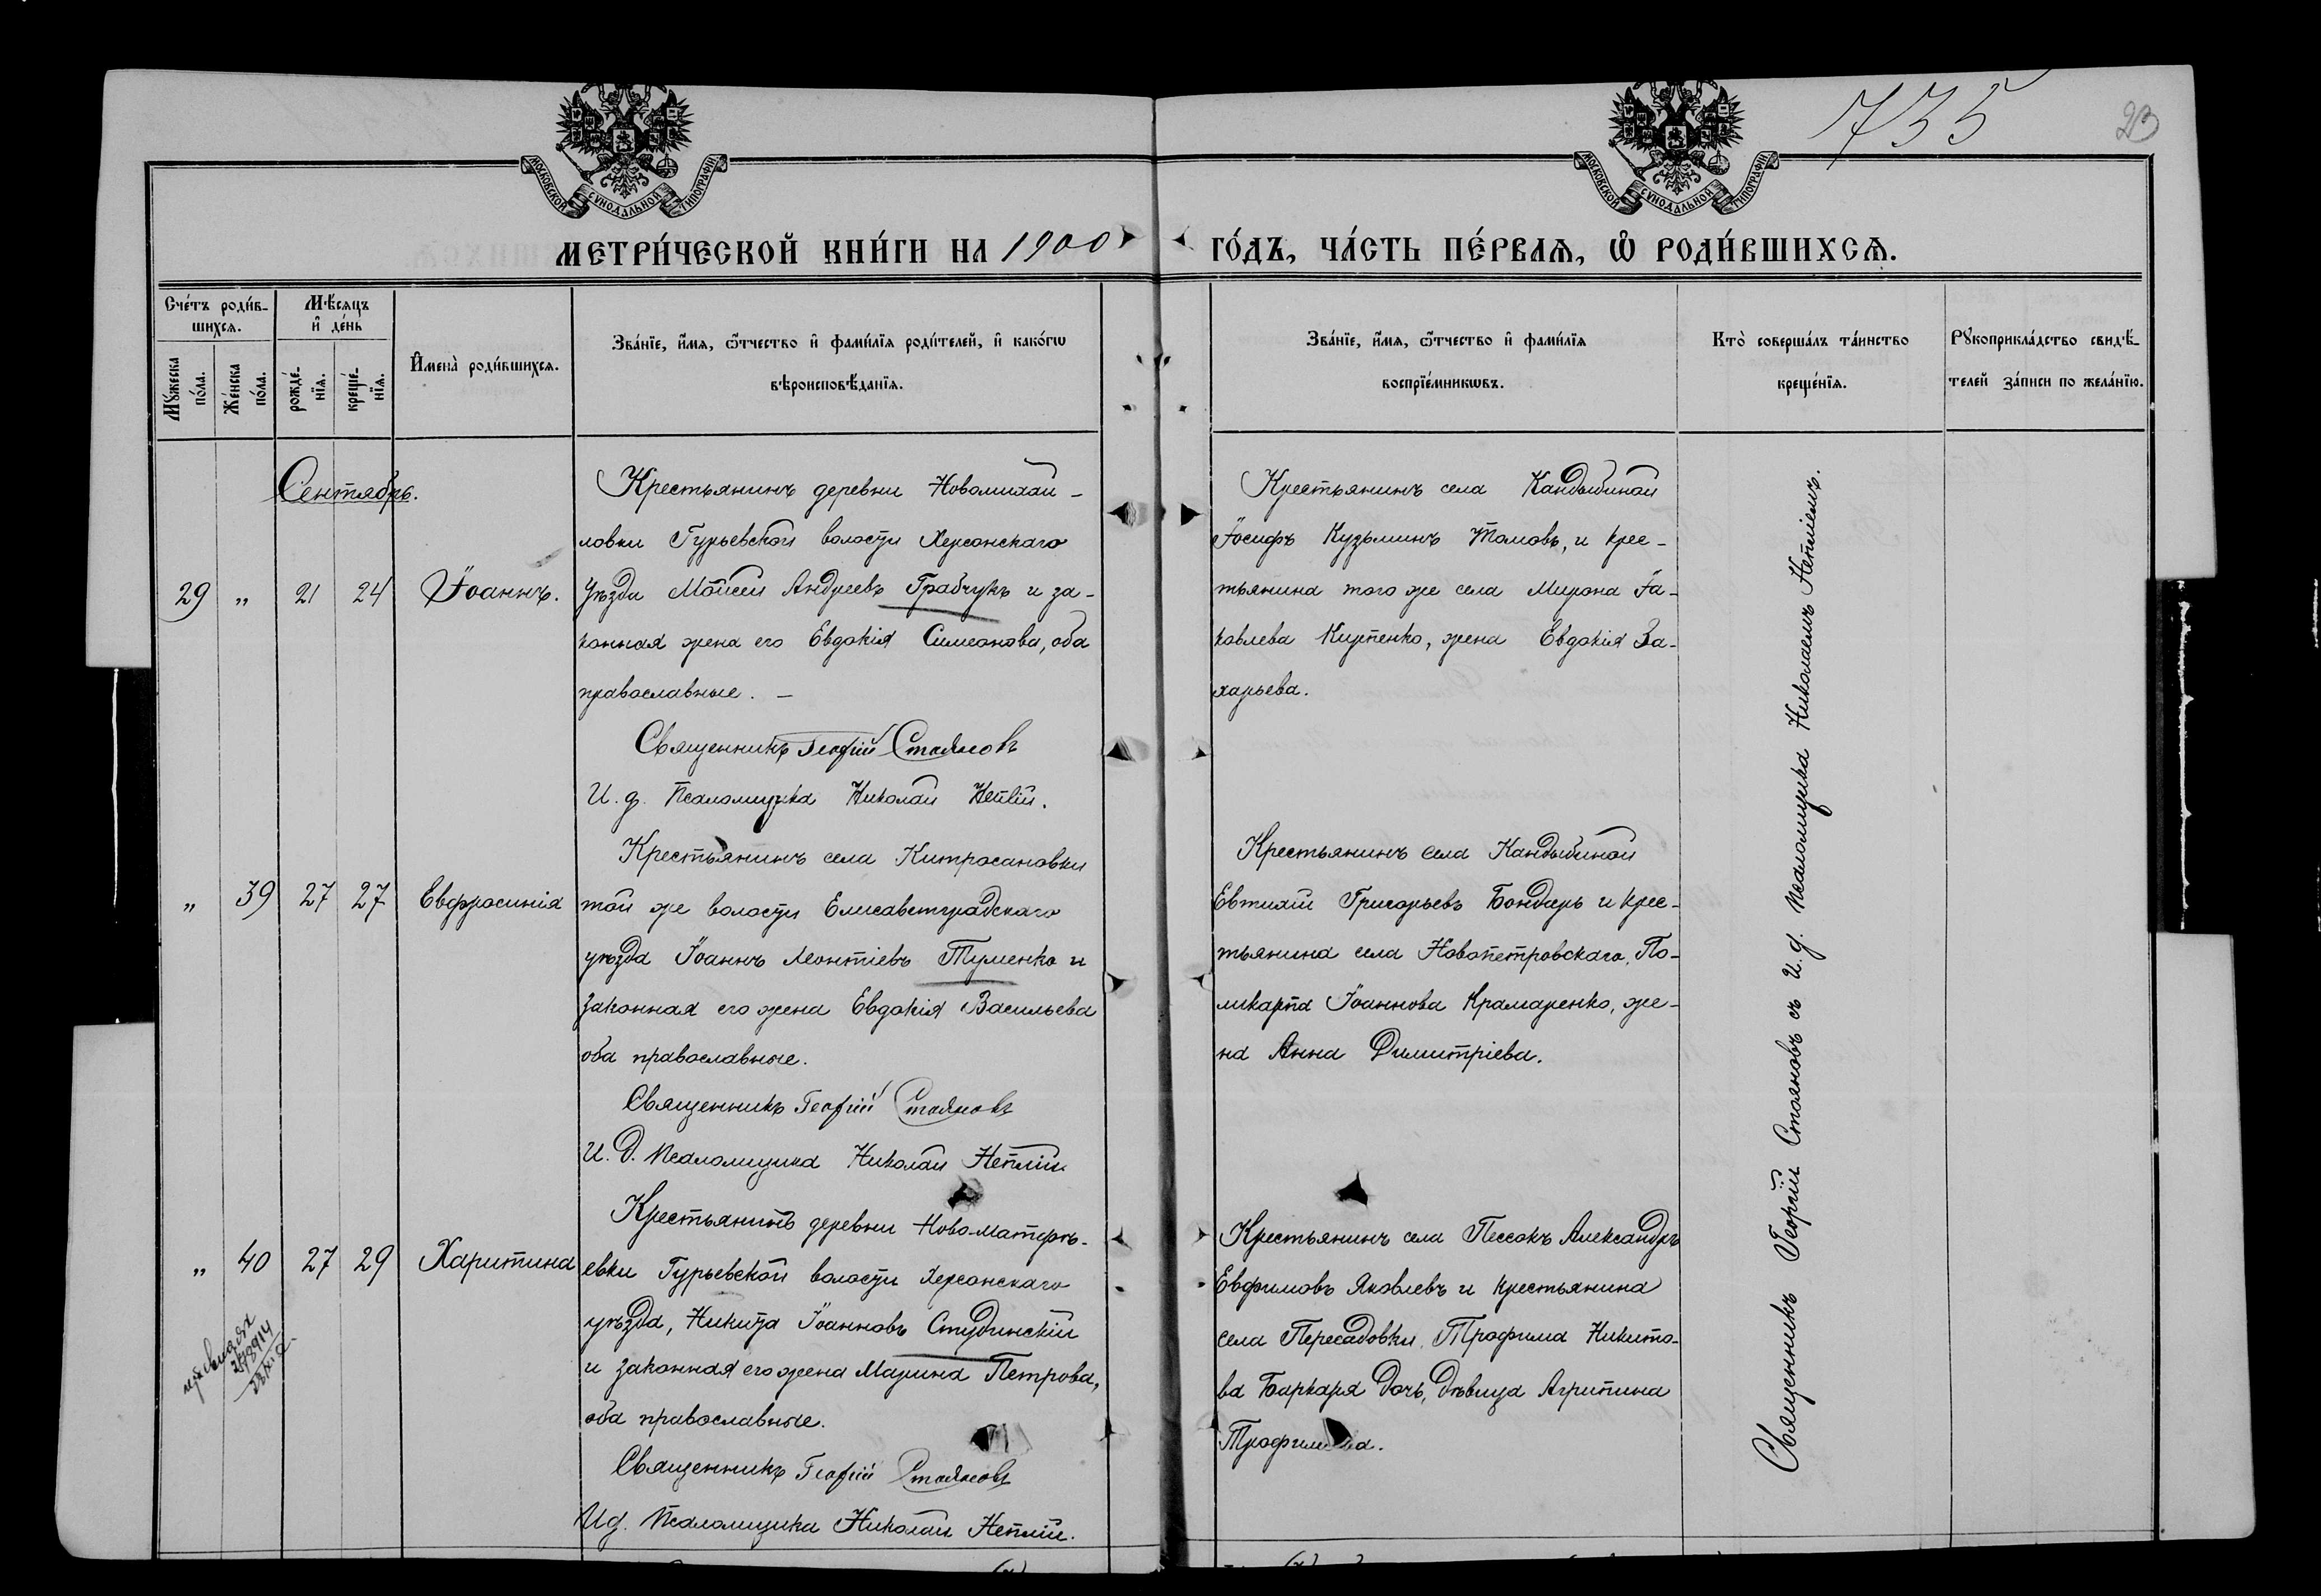 735
23
МОСКОВСКОЙ СѴНОДАЛЬНОЙ ТИПОГРАФІИ
МОСКОВСКОЙ СѴНОДАЛЬНОЙ ТИПОГРАФІИ
МЕТРИ́ЧЕСКОЙ КНИ́ГИ НА 1900 ГО́ДЪ, ЧА́СТЬ ПЕ́РВАѦ, Ѡ РОДИ́ВШИХСѦ.
Сче́тъ роди́в-
шихсѧ.
Мꙋ́жеска
по́ла.
Же́нска
по́ла.
Мѣ́сѧцъ
и҆ де́нь
рожде́-
нїѧ.
креще́-
нїѧ.
И҆мена̀ роди́вшихсѧ.
Зва́нїе, и҆́мѧ, ѻ҆́тчество и҆ фами́лїѧ роди́телей, и҆ како́гѡ
вѣроисповѣ́данїѧ.
Зва́нїе, и҆́мѧ, ѻ҆́тчество и҆ фами́лїѧ
воспрїе́мникѡвъ.
Кто̀ соверша́лъ та́инство
креще́нїѧ.
Рꙋкоприкла́дство свидѣ́-
телей за́писи по жела́нїю.
Сентябрь.
29 „ 21 24 Іоаннъ.
Крестьянинъ деревни Новомихай-
ловки Гурьевской волости Херсонскаго
уѣзда Мойсей Андреевъ Грабчукъ и за-
конная жена его Евдокія Симеонова, оба
православные. —
Священникъ Георгій Стояновъ
И. д. Псаломщика Николай
Крестьянинъ села Кандыбиной
Іосифъ Кузьминъ Томовъ, и крес-
тьянина того же села Мирона Іа-
ковлева жена Евдокія За-
харьева.
„ 39 27 27 Евфросинія
Крестьянинъ села Китросановки
той же волости Елисаветградскаго
уѣзда Іоаннъ Леонтіевъ Туменко и
законная его жена Евдокія Васильева
оба православные.
Священникъ Георгій Стояновъ
И. Д. Псаломщика Николай
Крестьянинъ села Кандыбиной
Евтихій Григорьевъ Бондарь и крес-
тьянина села Новопетровскаго, По-
ликарпа Іоаннова Крамаренко, же-
на Анна Димитріева.
„ 40 27 29 Харитина
Крестьянинъ деревни Новоматвѣ-
евки Гурьевской волости Херсонскаго
уѣзда, Никита Іоанновъ Студинскій
и законная его жена Марина Петрова,
оба православные.
Священникъ Георгій Стояновъ
И д. Псаломщика Николай
Крестьянинъ села Песокъ Александръ
Евфимовъ Яковлевъ и крестьянина
села Пересадовки, Трофима Никито-
ва Баркаря дочь, дѣвица Агрипина
Священникъ Георгій Стояновъ съ И. д. Псаломщика Николаемъ